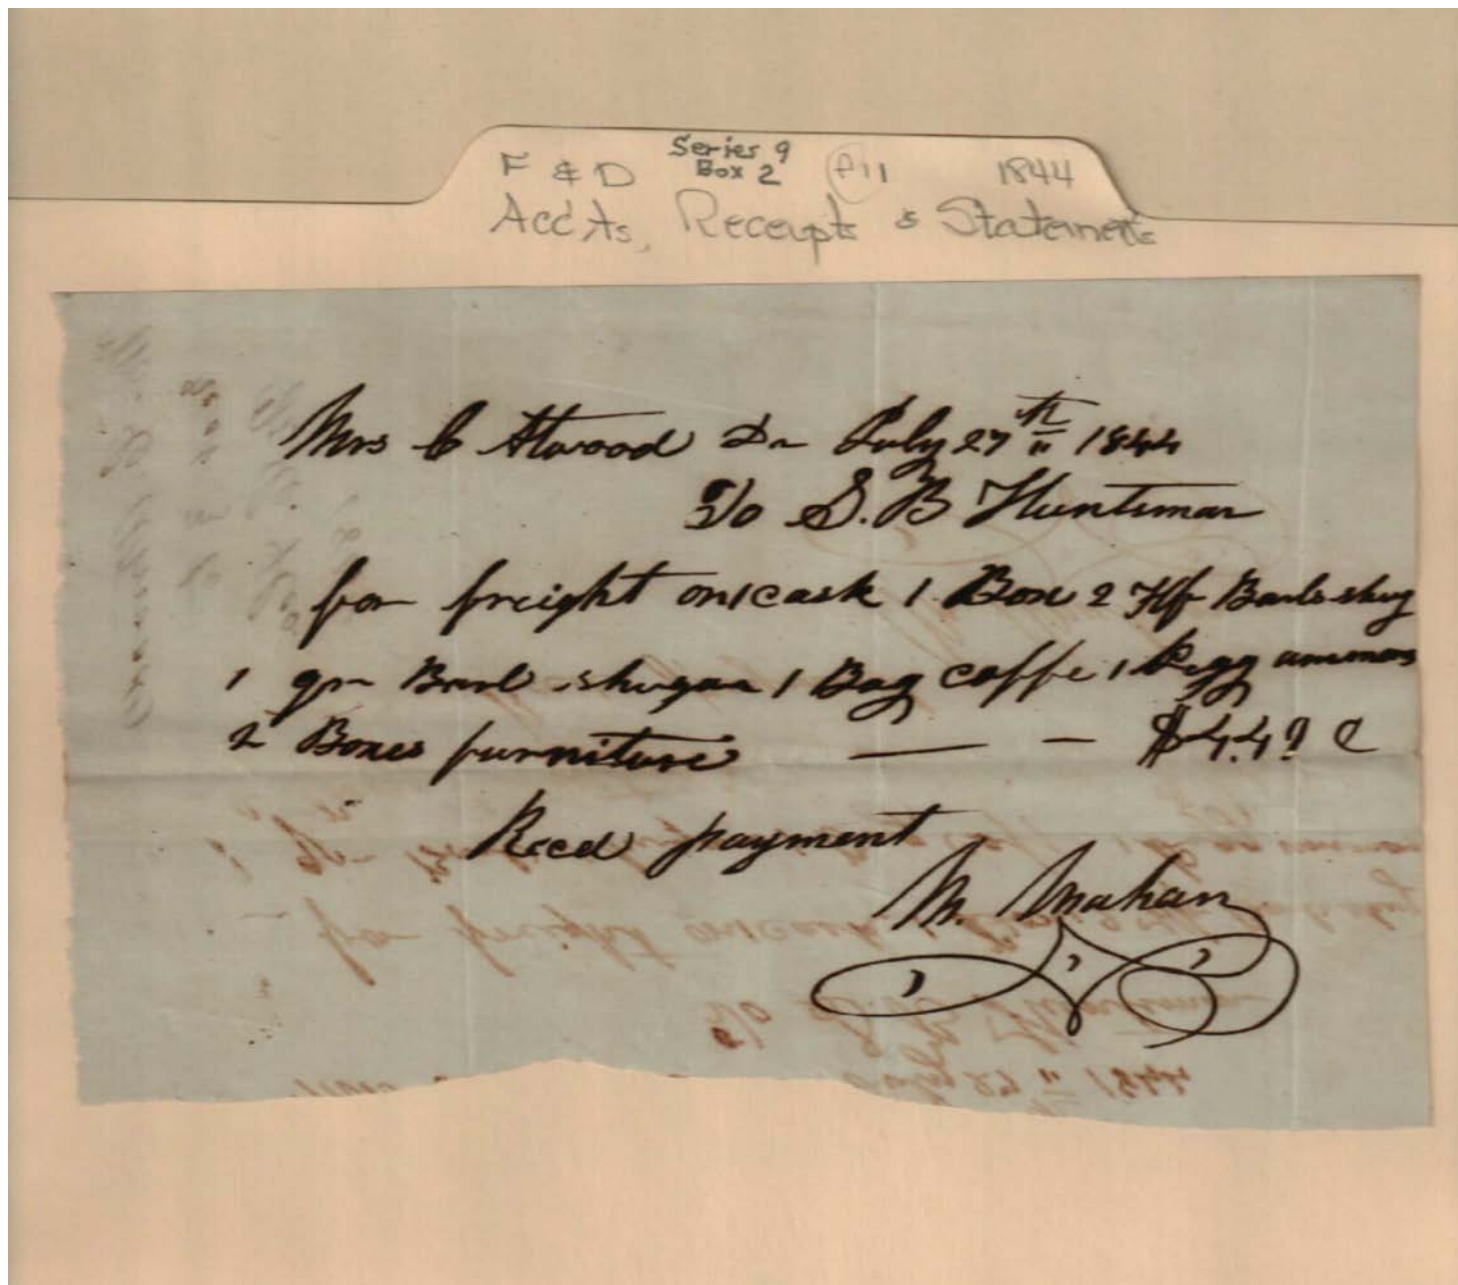 F & D Series 9 Box 2 P11 1844
Accts, Receipts & Statements
Mrs C Atwood Dr July 27th 1844
To S. B Huntsman
for freight on 1 cask 1 Box 2 Hf Barls shug
1 qr Barl shugar 1 Bag coffe 1 Kegg
2 Boxes furniture — — $4.42 C
Recd payment
M. Mahan